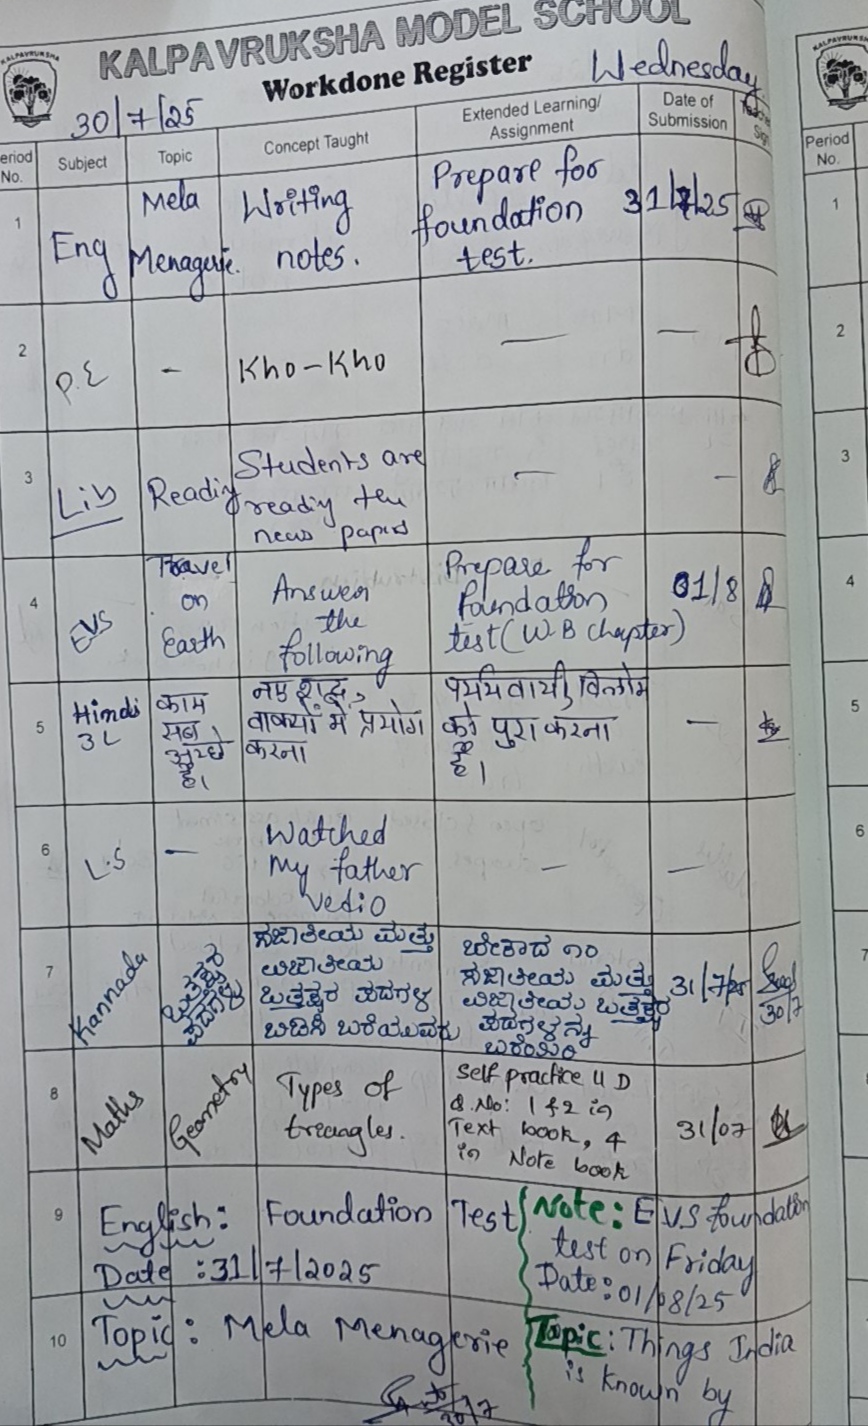 KALPAVRUKSHA MODEL SCHOOL
Workdone Register
Wednesday
30/7/25
eriod No.
Subject
Topic
Concept Taught
Extended Learning/ Assignment
Date of Submission
1
Eng
Mela
Menagerie.
Writing
notes.
Prepare for
foundation
test.
31/7/25
2
P.E
-
Kho-Kho
—
—
3
Lib
Readig
Students are
readig the
news papers
—
-
4
EVS
Travel
on
Earth
Answer
the
following
Prepare for
foundation
test (W.B chapter)
01/8
5
Hindi
3L
काम
सब
अच्छे
है।
नए शब्द,
वाक्यों में प्रयोग
करना
पर्यायवाची, विलोम
को पुरा करना
है।
—
6
L.S
—
Watched
My father
vedio
—
—
7
Kannada
ಒತ್ತಕ್ಷರ
ಪದಗಳು
ಸಜಾತೀಯ ಮತ್ತು
ವಿಜಾತೀಯ
ಒತ್ತಕ್ಷರ ಪದಗಳ
ಬಿಡಿಸಿ ಬರೆಯುವುದು
೧೦
ಸಜಾತೀಯ ಮತ್ತು
ವಿಜಾತೀಯ ಒತ್ತಕ್ಷರ
ಪದಗಳನ್ನು
ಬರೆಯಿರಿ
31/7/25
30/7
8
Maths
Geometry
Types of
triangles.
Self practice 4 D
Q.No: 1 & 2 in
Text book, 4
in Note book
31/07
9
English: Foundation Test
Date : 31/7/2025
Note: EVS foundation
test on Friday
Date: 01/08/25
10
Topic: Mela Menagerie
Topic: Things India
is known by
30/7
Period No.
1
2
3
4
5
6
7
8